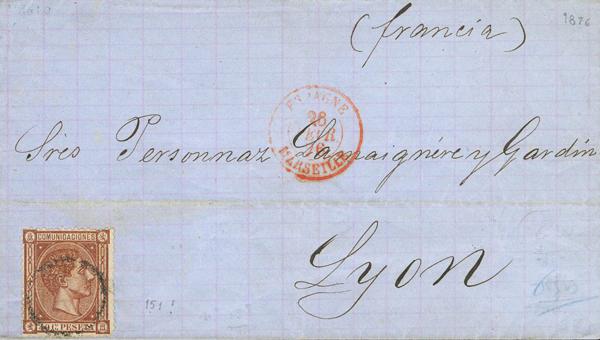 1876
(Francia)
ESPAGNE
28
FEVR
76
MARSEILLE
Sres Personnaz Lamaignère y Gardín
Lyon
COMUNICACIONES
40 C. PESETA
151!